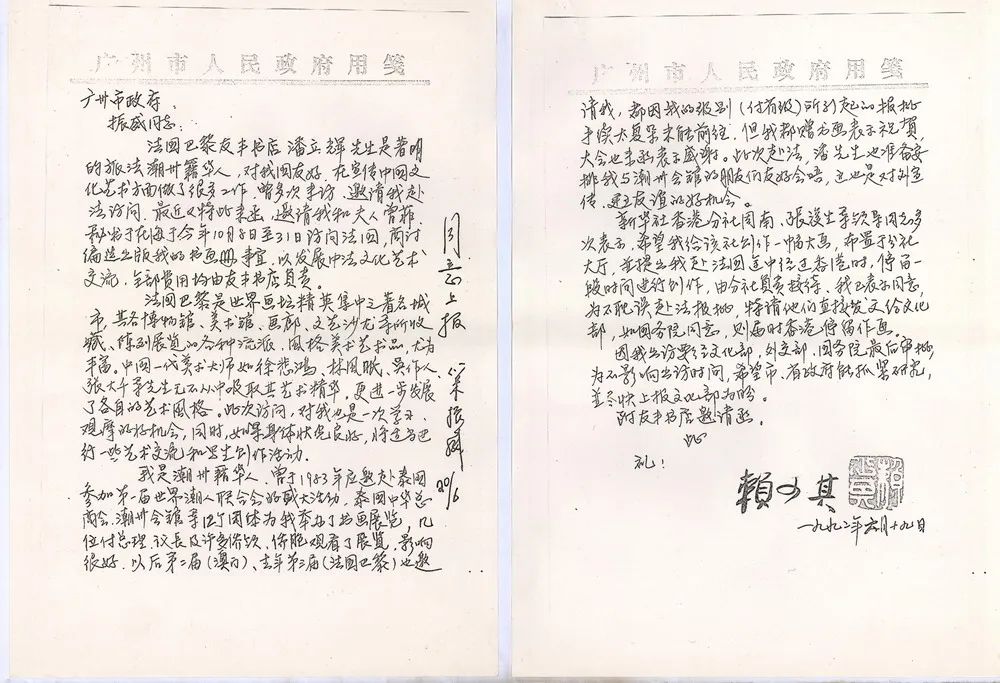 广州市人民政府用笺
广州市政府、
振威同志:
法国巴黎友丰书店潘立辉先生是著明
的旅法潮州籍华人,对我国友好,在宣传中国文
化艺术方面做了很多工作,曾多次来访、邀请我赴
法访问,最近又特此来函,邀请我和夫人曾菲、
秘书于在海于今年10月8日至31日访问法国,商讨
编选出版我的书画册事宜,以发展中法文化艺术
交流,全部费用均由友丰书店负责。
法国巴黎是世界画坛精英集中之著名城
市,其各博物馆、美术馆、画廊、文艺沙龙等所收
藏、陈列展览的各种流派、风格美术艺术品,尤为
丰富。中国一代美术大师如徐悲鸿、林风眠、吴作人、
张大千等先生无不从中吸取其艺术精华,更进一步发展
了各自的艺术风格。此次访问,对我也是一次学习、
观摩的好机会,同时,如果身体状况良好,将适当进
行一些艺术交流和写生创作活动。
我是潮州籍华人,曾于1983年应邀赴泰国
参加第一届世界潮人联合会的盛大活动,泰国中华总
商会、潮州会馆等12个团体为我举办了书画展览,几
位付总理、议长及许多侨领、侨胞观看了展览,影响
很好。以后第二届(澳门)、去年第三届(法国巴黎)也邀
同意上报
振威
20/6
广州市人民政府用笺
请我,都因我的级别(付省级)所引起的报批
手续太复杂未能前往,但我都赠书画表示祝贺,
大会也来函表示感谢。此次赴法,潘先生也准备安
排我与潮州会馆的朋友们友好会晤,这也是对外宣
传、建立友谊的好机会。
新华社香港分社周南、张浚生等领导同志多
次表示,希望我给该社创作一幅大画,布置于分社
大厅,并提出我赴法国途中经过香港时,停留一
段时间进行创作,由分社负责接待,我已表示同意,
为不耽误赴法报批,特请他们直接发文给文化
部,如国务院同意,则届时香港停留作画。
因我出访要经文化部、外交部、国务院最后审批,
为不影响出访时间,希望市、省政府能抓紧研究,
并尽快上报文化部为盼。
附友丰书店邀请函。
此
礼!
赖少其
一九九二年六月十九日